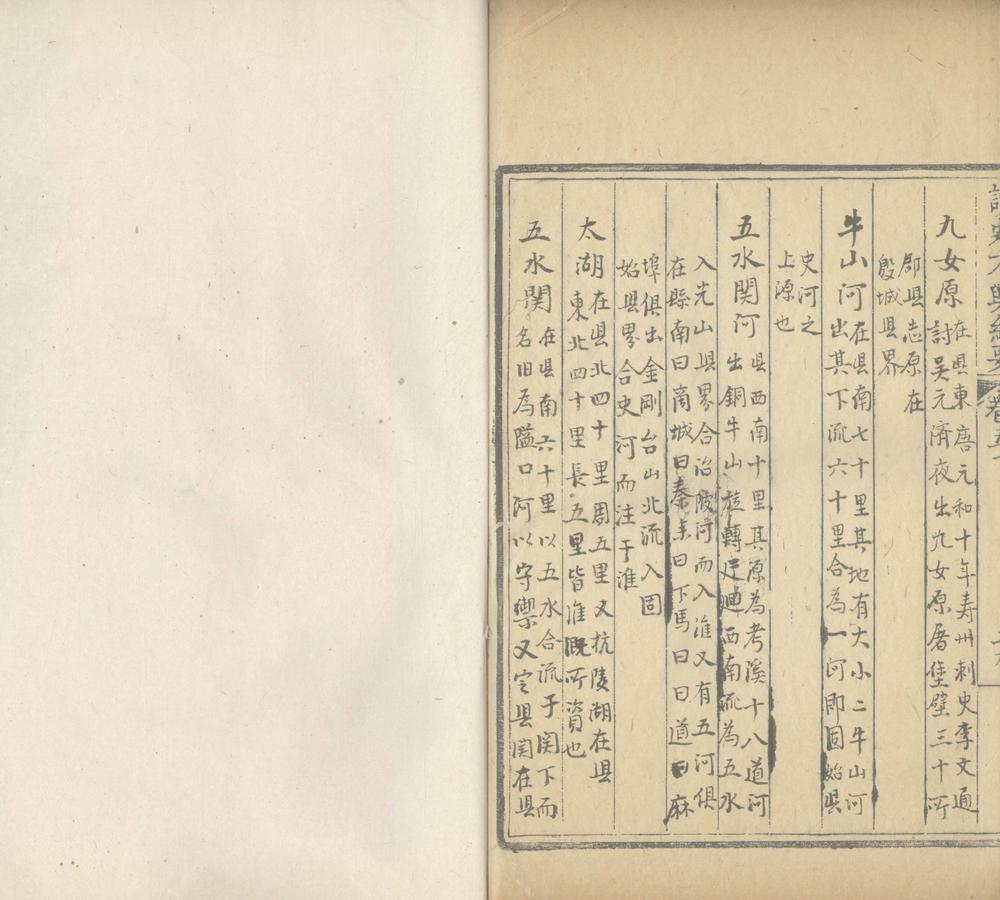 九女原在县東唐元和十年寿州刺史李文通
討吴元济夜出九女原屠堡壁三十所
即县志原在
殷城县界
牛山河在县南七十里其地有大小二牛山河
出其下流六十里合為一河即固始县
史河之
上源也
五水関河县西南十里其原為考溪十八道河
出銅牛山旋轉迂迴西南流為五水
入光山县界合泊陂河而入淮又有五河俱
在縣南曰商城曰秦曰下馬曰道曰麻
埠俱出金剛台山北流入固
始县界合史河而注于淮
太湖在县北四十里周五里又抗陵湖在县
東北四十里長五里皆淮溉所資也
五水関在县南六十里以五水合流于関下而
名旧為隘口河以守禦又定县関在县